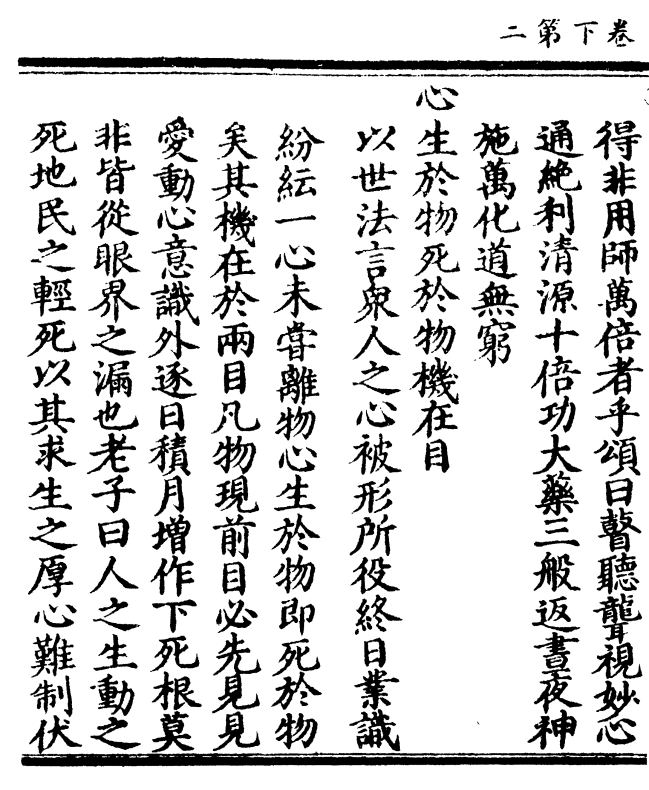 卷下第二
得非用師萬倍者乎頌曰瞽聽聾視妙心
通絶利清源十倍功大藥三般返晝夜神
施萬化道無窮
心生於物死於物機在目
以世法言衆人之心被形所役終日業識
紛紜一心未嘗離物心生於物即死於物
矣其機在於兩目凡物現前目必先見見
愛動心意識外逐日積月增作下死根莫
非皆從眼界之漏也老子曰人之生動之
死地民之輕死以其求生之厚心難制伏